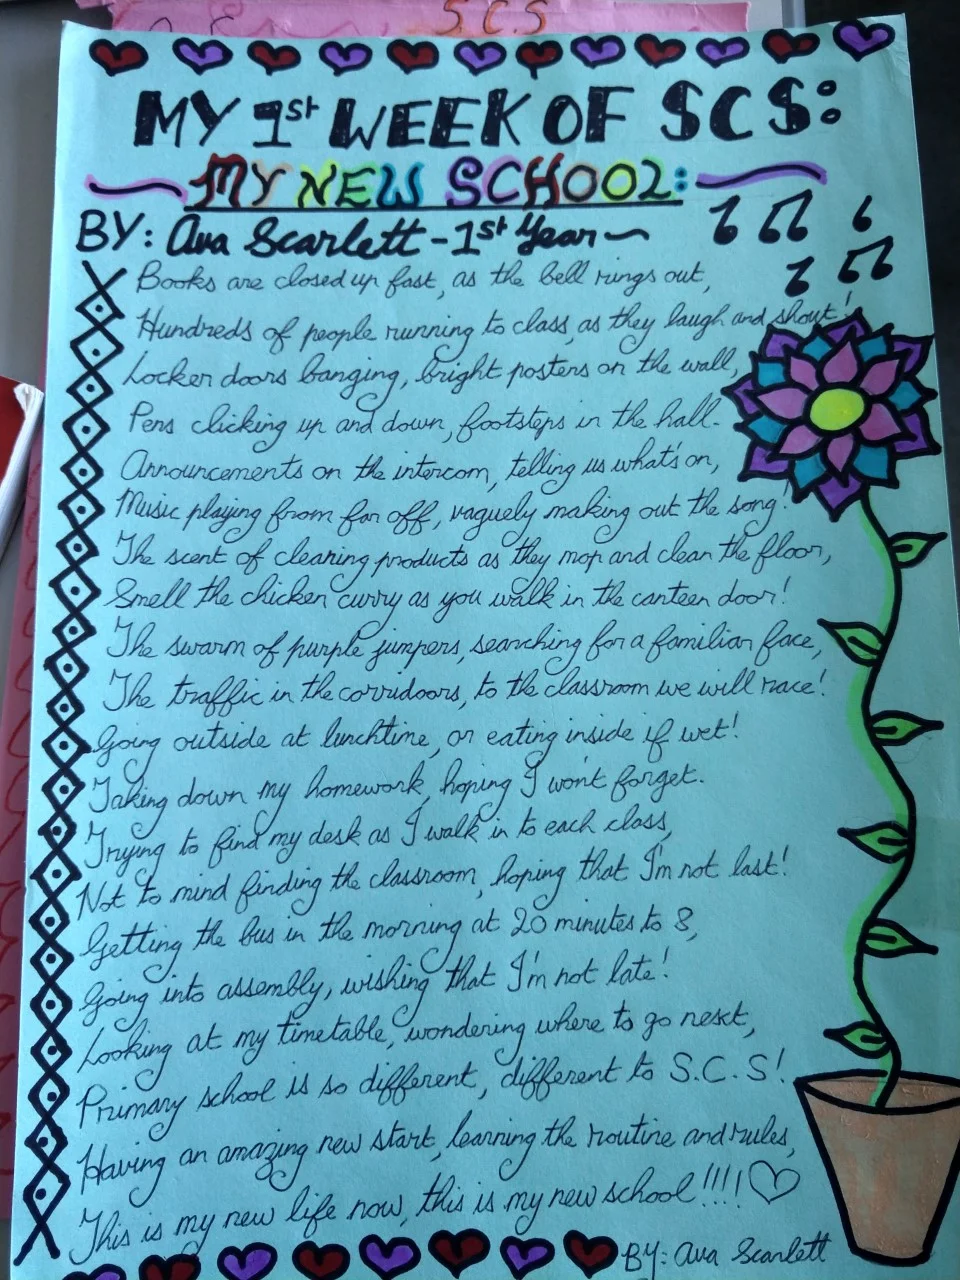 S.C.S
MY 1st WEEK OF SCS:
MY NEW SCHOOL:
BY: Ava Scarlett - 1st Year
Books are closed up fast, as the bell rings out,
Hundreds of people running to class, as they laugh and shout!
Locker doors banging, bright posters on the wall,
Pens clicking up and down, footsteps in the hall.
Announcements on the intercom, telling us what's on,
Music playing from far off, vaguely making out the song!
The scent of cleaning products as they mop and clean the floor,
Smell the chicken curry as you walk in the canteen door!
The swarm of purple jumpers, searching for a familiar face,
The traffic in the corridoors, to the classroom we will race!
Going outside at lunchtime, or eating inside if wet!
Taking down my homework, hoping I won't forget.
Trying to find my desk as I walk in to each class,
Not to mind finding the classroom, hoping that I'm not last!
Getting the bus in the morning at 20 minutes to 8,
Going into assembly, wishing that I'm not late!
Looking at my timetable, wondering where to go next,
Primary school is so different, different to S.C.S!
Having an amazing new start, learning the routine and rules,
This is my new life now, this is my new school!!!!
BY: Ava Scarlett